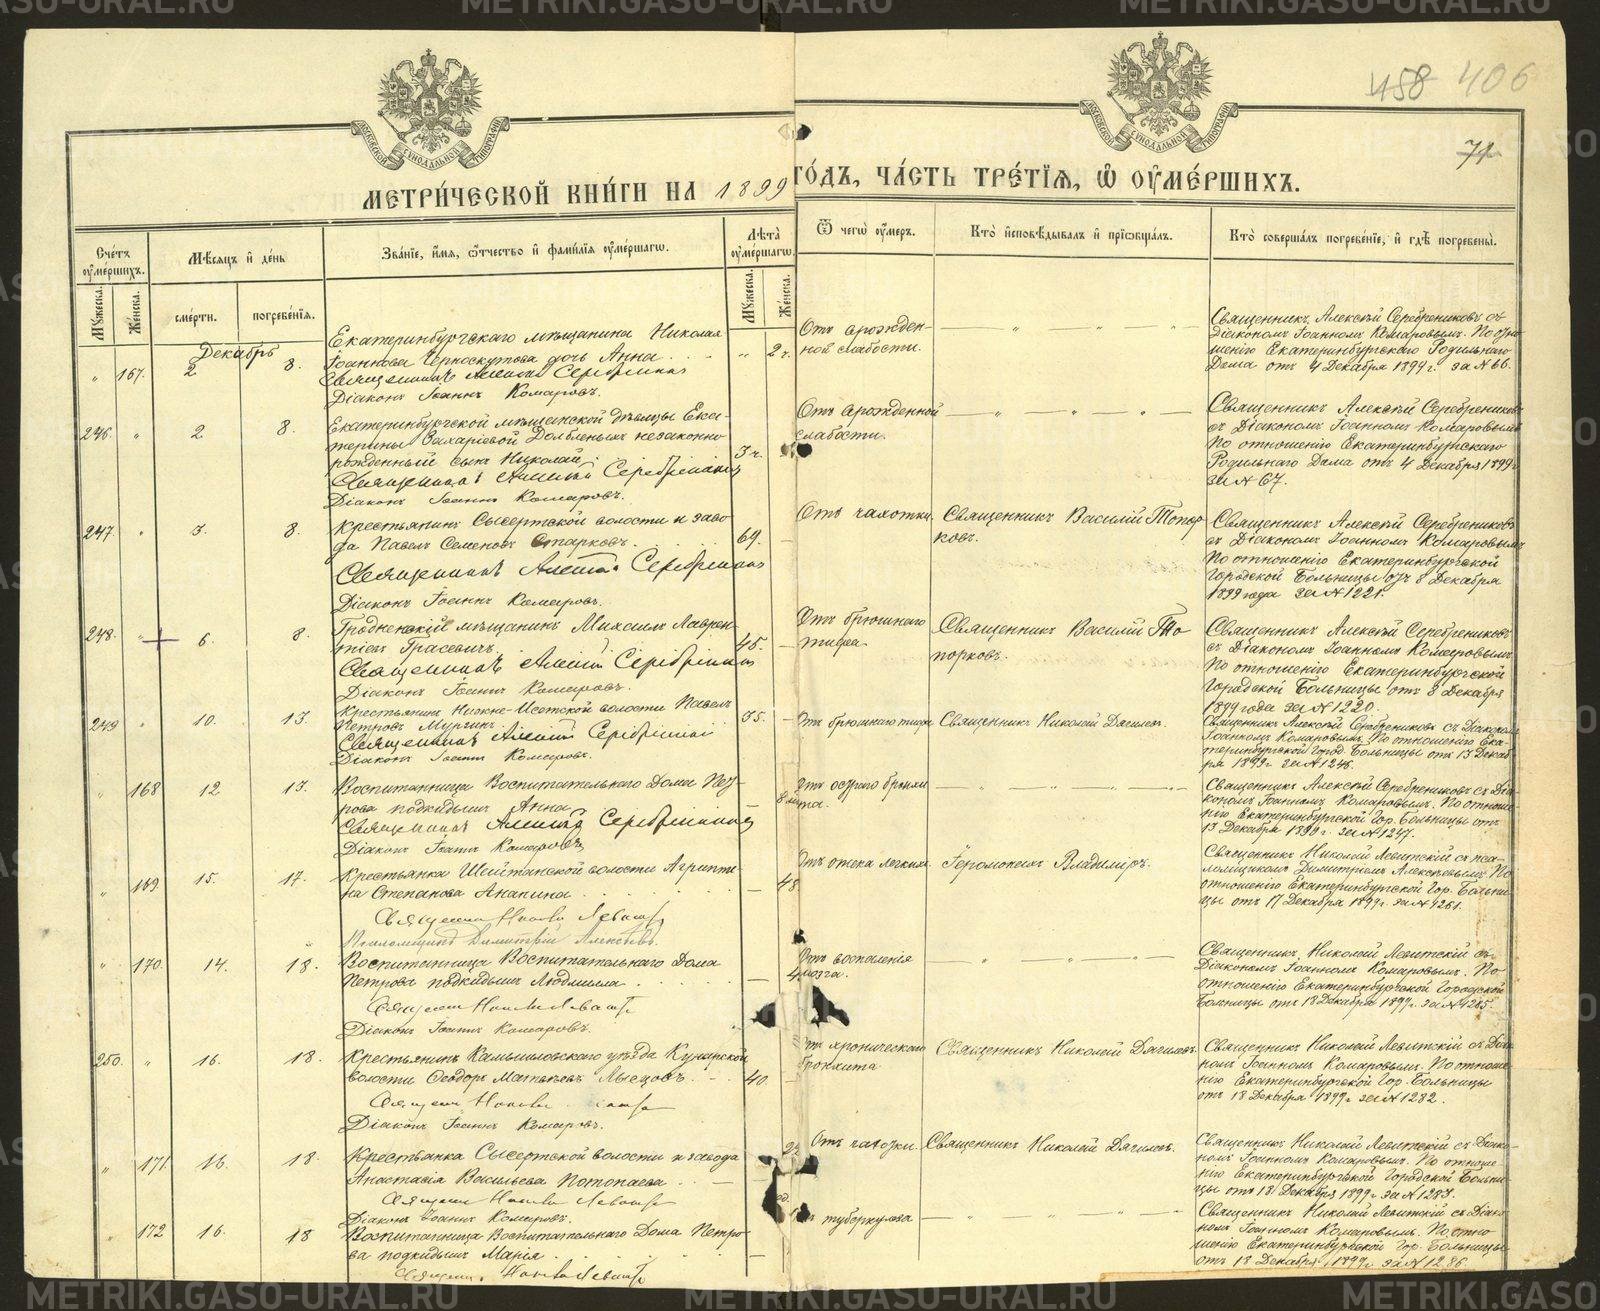 458 406
71
МЕТРИ́ЧЕСКОЙ КНИ́ГИ НА 1899 ГО́ДЪ, ЧА́СТЬ ТРЕ́ТІѦ, Ѡ҆ ОУ҆МЕ́РШИХЪ.
Сче́тъ оу҆ме́ршихъ.
Мꙋ́жеска. Же́нска.
Мѣ́сѧцъ и҆ де́нь
сме́рти. погребе́нїѧ.
Зва́нїе, и҆́мѧ, ѻ҆́тчество и҆ фамі́лїѧ оу҆ме́ршагѡ.
Лѣ́та оу҆ме́ршагѡ.
Мꙋ́жеска. Же́нска.
Ѿ чегѡ̀ оу҆́меръ.
Кто̀ и҆сповѣ́дывалъ и҆ прїѡбща́лъ.
Кто̀ соверша́лъ погребе́нїе, и҆ гдѣ̀ погребены̀.
Декабрь
" 167. 2 8.
Екатеринбургскаго мѣщанина Николая
Іоаннова Черноскутова дочь Анна
Священникъ Алексѣй Серебрениковъ
Діаконъ Іоаннъ Комаровъ.
" 2 ч.
Отъ врожден-
ной слабости.
Священникъ Алексѣй Серебрениковъ съ
Діакономъ Іоанномъ Комаровымъ. По отно-
шенію Екатеринбургскаго Родильнаго
Дома отъ 4 Декабря 1899 г. за № 66.
246. " 2 8.
Екатеринбургской мѣщанской дѣвицы Ека-
терины Захаріевой Долбленыхъ незаконно-
рожденный сынъ Николай.
Священникъ Алексѣй Серебрениковъ
Діаконъ Іоаннъ Комаровъ.
3 ч.
Отъ врожденной
слабости.
Священникъ Алексѣй Серебрениковъ
съ Діакономъ Іоанномъ Комаровымъ
По отношенію Екатеринбургскаго
Родильнаго Дома отъ 4 Декабря 1899 г.
за № 67.
247. " 3. 8.
Крестьянинъ Сысертской волости и заво-
да Павелъ Семеновъ Старковъ.
Священникъ Алексѣй Серебрениковъ
Діаконъ Іоаннъ Комаровъ.
69.
Отъ чахотки.
Священникъ Василій Топор-
ковъ.
Священникъ Алексѣй Серебрениковъ
съ Діакономъ Іоанномъ Комаровымъ
По отношенію Екатеринбургской
Городской Больницы отъ 8 Декабря
1899 года за № 1221.
248. " 6. 8.
Гродненскій мѣщанинъ Михаилъ Лаврен-
тіевъ Грасевичъ.
Священникъ Алексѣй Серебрениковъ
Діаконъ Іоаннъ Комаровъ.
45.
Отъ брюшного
тифа.
Священникъ Василій То-
порковъ.
Священникъ Алексѣй Серебрениковъ
съ Діакономъ Іоанномъ Комаровымъ
По отношенію Екатеринбургской
Городской Больницы отъ 8 Декабря
1899 года за № 1220.
249 " 10. 13.
Крестьянинъ Нижне-Исетской волости Павелъ
Петровъ Мургинъ.
Священникъ Алексѣй Серебрениковъ
Діаконъ Іоаннъ Комаровъ.
35.
Отъ брюшнаго тифа
Священникъ Николай Дягилевъ.
Священникъ Алексѣй Серебрениковъ съ Діакономъ
Іоанномъ Комаровымъ. По отношенію Ека-
теринбургской Город. Больницы отъ 13 Декаб-
ря 1899 г. за № 1246.
" 168 12 13.
Воспитанница Воспитательнаго Дома Пет-
рова подкидышъ Анна
Священникъ Алексѣй Серебрениковъ
Діаконъ Іоаннъ Комаровъ
Отъ остраго бронхи
та.
Священникъ Алексѣй Серебрениковъ съ Діа-
кономъ Іоанномъ Комаровымъ. По отноше-
нію Екатеринбургской Гор. Больницы отъ
13 Декабря 1899 г. за № 1247.
" 169 15. 17.
Крестьянка Шейтанской волости Агриппи-
на Степанова Анапина
Священникъ Николай Левитскій
Псаломщикъ Димитрій Алексѣевъ.
48.
Отъ отека легкихъ
Іеромонахъ Владиміръ.
Священникъ Николай Левитскій съ пса-
ломщикомъ Димитріемъ Алексѣевымъ. По
отношенію Екатеринбургской Гор. Больни-
цы отъ 17 Декабря 1899 г. за № 1261.
" 170. 14. 18.
Воспитанница Воспитательнаго Дома
Петрова подкидышъ Людмила
Священникъ Николай Левитскій
Діаконъ Іоаннъ Комаровъ.
4
Отъ воспаленія
мозга.
Священникъ Николай Левитскій съ
Діакономъ Іоанномъ Комаровымъ. По
отношенію Екатеринбургской Городской
Больницы отъ 18 Декабря 1899 г. за № 1285.
250. " 16. 18.
Крестьянинъ Камышловскаго уѣзда Кунарской
волости Ѳеодоръ Матвѣевъ Лысцовъ.
Священникъ Николай Левитскій
Діаконъ Іоаннъ Комаровъ.
40.
Отъ хроническаго
бронхита
Священникъ Николай Дягилевъ.
Священникъ Николай Левитскій съ Діако-
номъ Іоанномъ Комаровымъ. По отноше-
нію Екатеринбургской Гор. Больницы
отъ 18 Декабря 1899 г. за № 1282.
" 171. 16. 18.
Крестьянка Сысертской волости и завода
Анастасія Васильева Потопаева
Священникъ Николай Левитскій
Діаконъ Іоаннъ Комаровъ.
Отъ чахотки.
Священникъ Николай Дягилевъ.
Священникъ Николай Левитскій съ Діако-
номъ Іоанномъ Комаровымъ. По отноше-
нію Екатеринбургской Городской Больни-
цы отъ 18 Декабря 1899 г. за № 1283.
" 172 16. 18
Воспитанница Воспитательнаго Дома Петро-
ва подкидышъ Марія
Священникъ Николай Левитскій
туберкулеза
Священникъ Николай Левитскій съ Діако-
номъ Іоанномъ Комаровымъ. По отно-
шенію Екатеринбургской Гор. Больницы
отъ 18 Декабря 1899 г. за № 1286.
METRIKI.GASO-URAL.RU